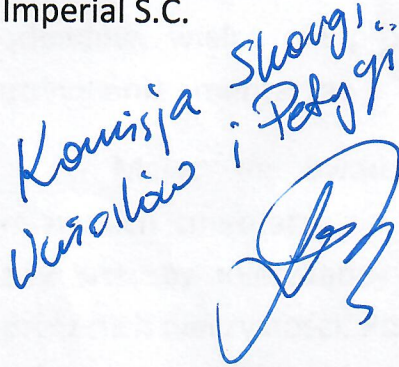 Imperial S.C.
Komisja Skarg,
Wniosków i Petycji